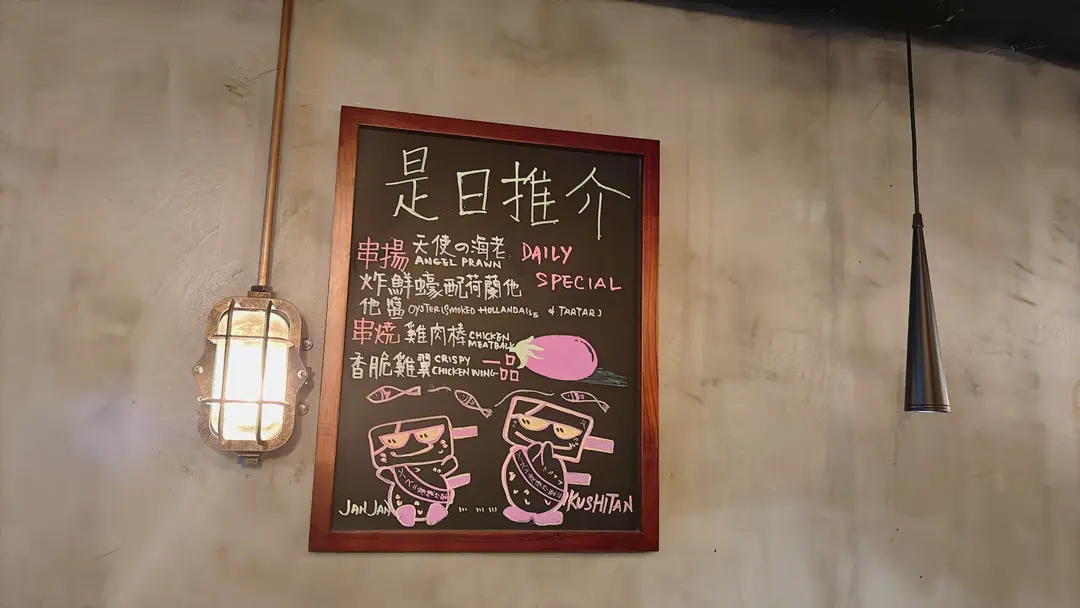 是日推介
串揚 天使の海老 DAILY
ANGEL PRAWN
炸鮮蠔配荷蘭他 SPECIAL
他醬 OYSTER (SMOKED HOLLANDAISE & TARTAR)
串燒 雞肉棒 CHICKEN
MEATBALL
香脆雞翼 CRISPY 一品
CHICKEN WING
JAN JAN
KUSHITAN